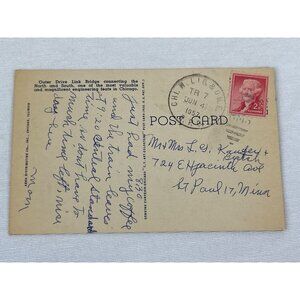 Outer Drive Link Bridge connecting the
North and South, one of the most valuable
and magnificent engineering feats in Chicago.
POST CARD
TR 7
JUN 4
2¢
8:30
Just had my coffee
and the train leaves
at 9:20 Central Standard
time, so don't have to
much time left nice
day here
Mom
Mr & Mrs L. D.
724 E Hyacinth Ave
St Paul 17, Minn